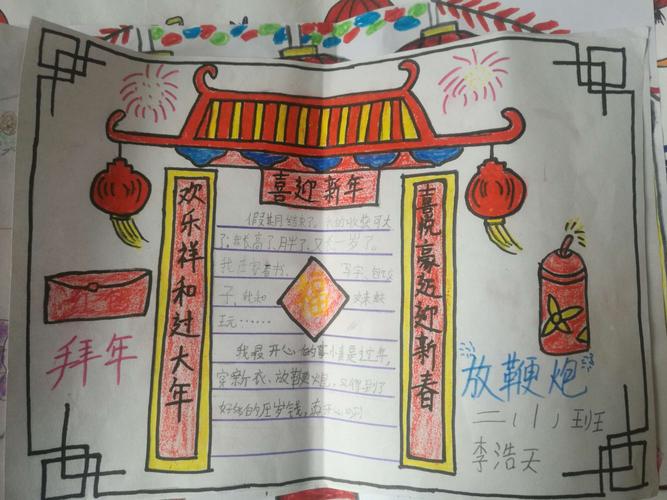 喜迎新年
欢乐祥和过大年
喜悦豪迈迎新春
假期结束了,我的收获可大
了:我长高了、月半了、又大一岁了。
我在家看书、写字、包饺
子,
玩……
福
我最开心的事情是过年,
穿新衣、放鞭炮、又得到了
好多的压岁钱,真开心啊
拜年
放鞭炮
二,1,班
李浩天